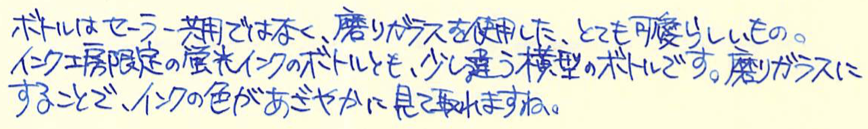 ボトルはセーラー共用ではなく、磨りガラスを使用した、とても可愛らしいもの。
インク工房限定の蛍光インクのボトルとも、少し違う模型のボトルです。磨りガラスに
することで、インクの色があざやかに見て取れますね。